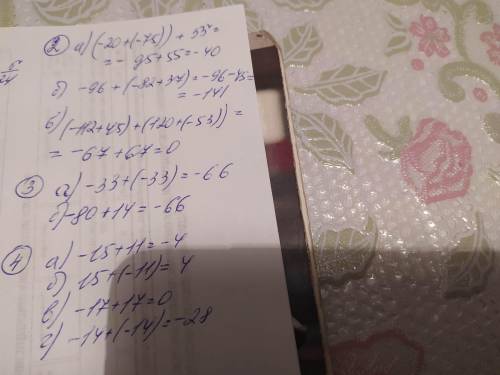 2 а) (-20+(-75)) + 55 =
= - 95+55 = -40
б) -96 + (-82+37) = -96-45 =
= -141
в) (-112+45) + (120+(-53)) =
= -67+67=0
3 а) -33+(-33) = -66
б) -80+14 = -66
4 а) -15+11 = -4
б) 15+(-11) = 4
в) -17+17=0
г) -14+(-14) = -28